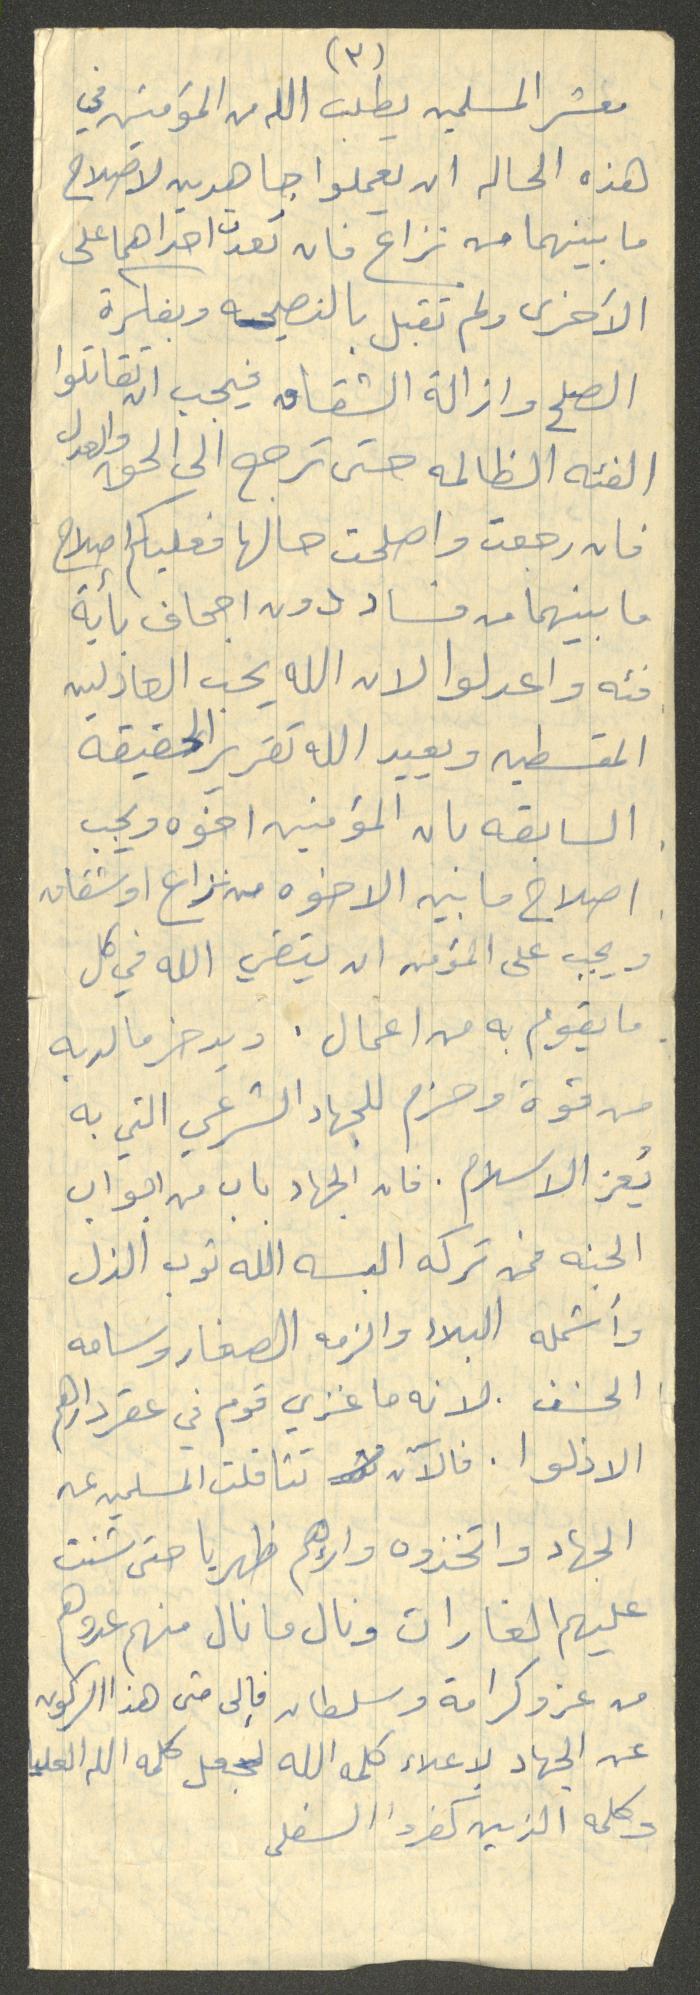 (٣)
معشر المسلمين يطلب الله من المؤمنين في
هذه الحاله ان يعملوا جاهدين لاصلاح
ما بينهما من نزاع فان تعدت احداهما على
الأخرى ولم تقبل بالنصيحه وبفكرة
الصلح وازالة الشقاق فيجب ان تقاتلوا
الفئه الظالمه حتى ترجع الى الحق والعدل
فان رجعت واصلحت حالها فعليكم اصلاح
ما بينهما من فساد دون اجحاف بأية
فئه واعدلوا لان الله يحب العادلين
المقسطين ويعيد الله تقرير الحقيقة
السابقه بان المؤمنين اخوه ويجب
اصلاح ما بين الاخوه من نزاع او شقاق
ويجب على المؤمن ان يتقي الله في كل
ما يقوم به من اعمال . ويدخر ما لديه
من قوة وحزم للجهاد الشرعي التي به
يُعز الاسلام . فان الجهاد باب من ابواب
الجنه فمن تركه البسه الله ثوب الذل
وأشمله البلاء والزمه الصغار وسامه
الخسف . لانه ما غزي قوم في عقر دارهم
الا ذلوا . فالآن تثاقلت المسلمين عن
الجهاد واتخذوه وارءهم ظهريا حتى شنت
عليهم الغارات ونال ما نال منهم عدوهم
من عز وكرامة وسلطان فإلى متى هذا الركون
عن الجهاد لإعلاء كلمه الله لجعل كلمه الله العليا
وكلمه الذين كفروا السفلى